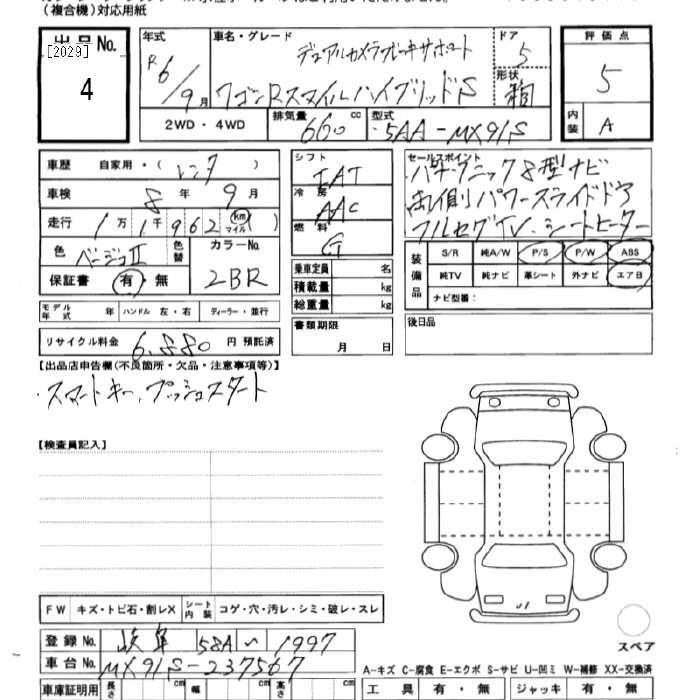 (複合機)対応用紙
出品No.
[2029]
4
年式
R6/9月
車名・グレード
デュアルカメラブレーキサポート
ワゴンRスマイルハイブリッドS
ドア
5
形状
箱
評価点
5
内装
A
2WD・4WD
排気量
660 cc
型式
5AA-MX91S
車歴 自家用・(レンタ)
車検 8年9月
走行 1万1千962 km マイル
色 ベージュII
色替
カラーNo.
2BR
保証書 有・無
モデル年式 年 ハンドル 左・右 ディーラー・並行
リサイクル料金 6,880円 預託済
シフト
IAT
冷房
AAC
燃料
G
乗車定員 名
積載量 kg
総重量 kg
書類期限
月 日
セールスポイント
パナソニック8型ナビ
両側パワースライドドア
フルセグTV、シートヒーター
装備品
S/R 純A/W P/S P/W ABS
純TV 純ナビ 革シート 外ナビ エアB
ナビ型番:
後日品
【出品店申告欄(不良箇所・欠品・注意事項等)】
・スマートキー、プッシュスタート
【検査員記入】
FW キズ・トビ石・割レX シート内装 コゲ・穴・汚レ・シミ・破レ・スレ
登録No. 岐阜 581 A ~ 1997
車台No. MX91S-237567
車庫証明用 長さ cm 幅 cm 高さ cm
スペア
A-キズ C-腐食 E-エクボ S-サビ U-凹ミ W-補修 XX-交換済
工具 有・無 ジャッキ 有・無